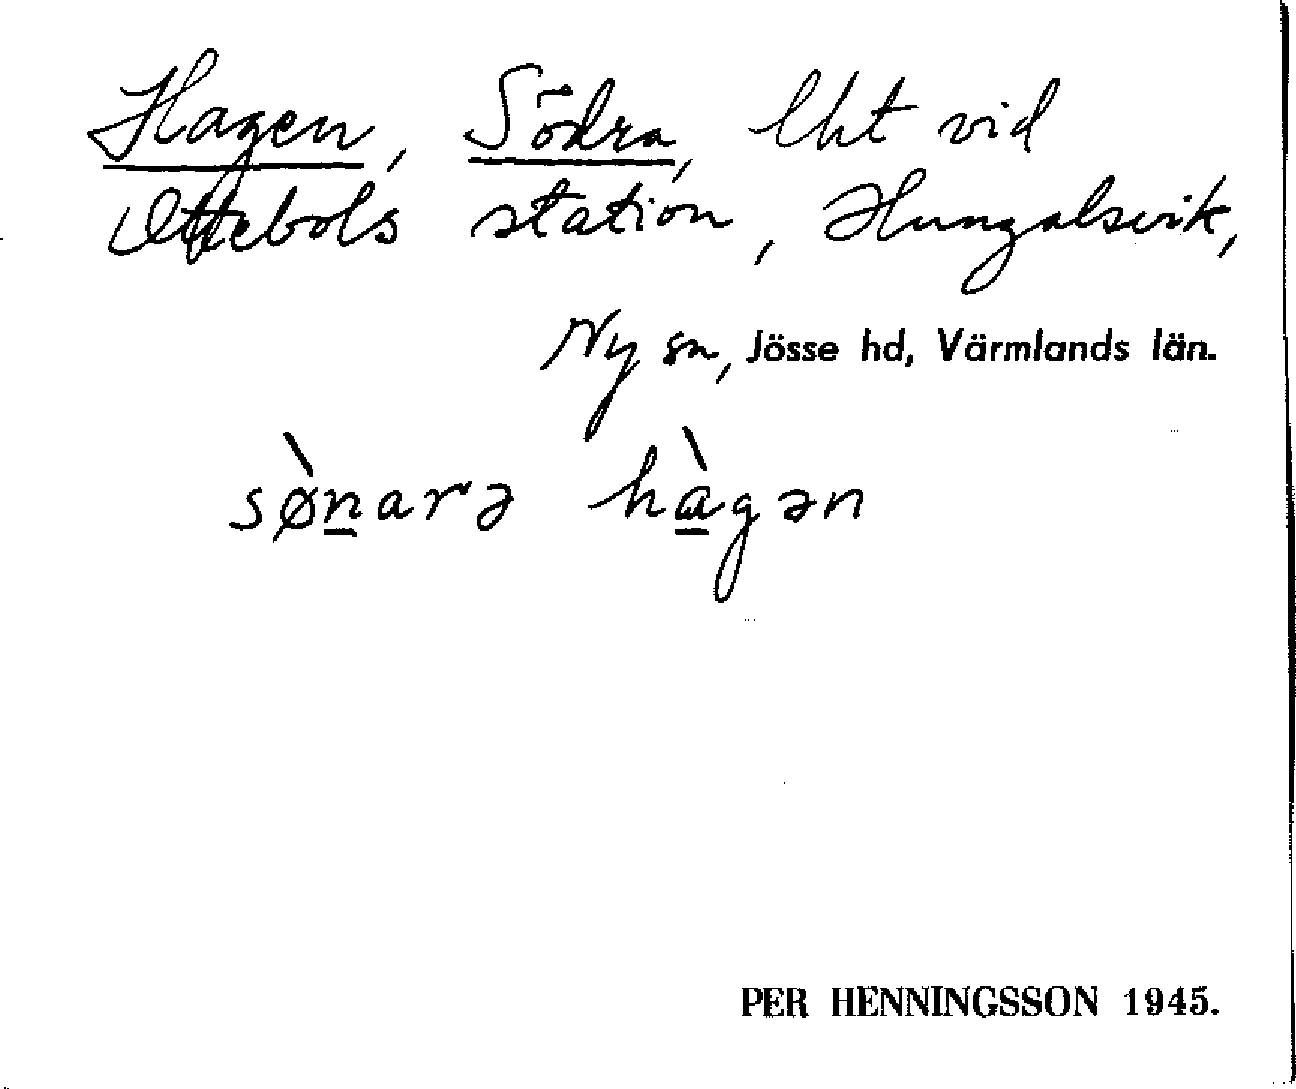 Hagen, Södra, lht vid
Ottebols station, Hungalsvik,
Ny sn, Jösse hd, Värmlands län.
sø̀n̲arə hà̲gən
PER HENNINGSSON 1945.